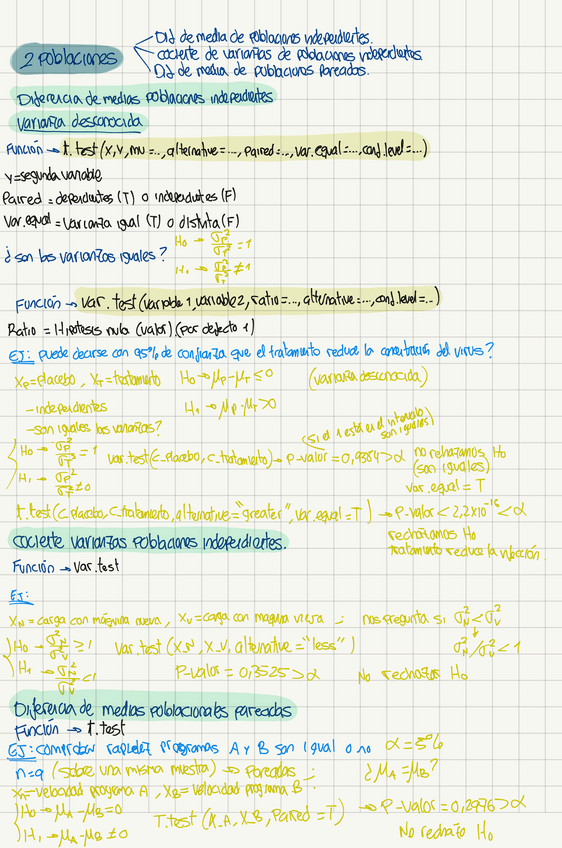 2 poblaciones
Dif de media de poblaciones independientes.
cociente de varianzas de poblaciones independientes.
Dif de media de poblaciones pareadas.
Diferencia de medias poblaciones independientes
Varianza desconocida
Función → t.test(x, y, mu = ..., alternative = ..., paired = ..., var.equal = ..., conf.level = ...)
y = segunda variable
Paired = dependientes (T) o independientes (F)
Var.equal = Varianza igual (T) o distinta (F)
¿son las varianzas iguales?
H₀ → σ²P/σ²T = 1
H₁ → σ²P/σ²T ≠ 1
Función → var.test(variable 1, variable 2, ratio = ..., alternative = ..., conf.level = ...)
Ratio = Hipotesis nula (valor) (por defecto 1)
EJ: puede decirse con 95% de confianza que el tratamiento reduce la concentración del virus?
Xp = placebo, XT = tratamiento H₀ → μP - μT ≤ 0 (varianza desconocida)
- independientes H₁ → μP - μT > 0
- son iguales las varianzas?
(si el 1 está en el intervalo son iguales)
H₀ → σ²P/σ²T = 1 var.test(c_placebo, c_tratamiento) → P-valor = 0,9384 > α no rechazamos H₀
(son iguales)
H₁ → σ²P/σ²T ≠ 0 var.equal = T
t.test(c_placebo, c_tratamiento, alternative = "greater", var.equal = T) → P-valor < 2,2x10⁻¹⁶ < α
rechazamos H₀
tratamiento reduce la infección
cociente varianzas poblaciones independientes.
Función → var.test
EJ:
XN = carga con máquina nueva, XV = carga con maquina vieja → nos pregunta si σ²N < σ²V
σ²N/σ²V < 1
H₀ → σ²N/σ²V ≥ 1 var.test(X_N, X_V, alternative = "less")
H₁ → σ²N/σ²V < 1 P-valor = 0,3525 > α No rechazar H₀
Diferencia de medias poblacionales pareadas
Función → t.test
EJ: comprobar rapidez programas A y B son igual o no α = 5%
n = 9 (sobre una misma muestra) → Pareadas ¿μA = μB?
XA = velocidad programa A, XB = velocidad programa B
H₀ → μA - μB = 0
H₁ → μA - μB ≠ 0
T.test(X_A, X_B, paired = T) → P-valor = 0,2976 > α
No rechazo H₀